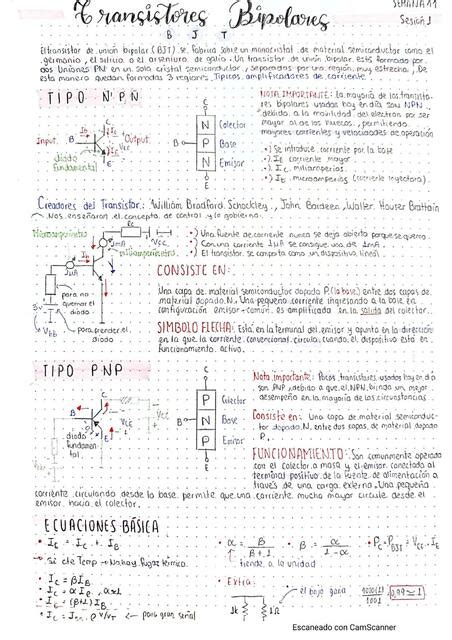 SEMANA 11
Transistores Bipolares
Sesión 1
B J T
El transistor de unión bipolar (BJT) se fabrica sobre un monocristal de material semiconductor como el
germanio, el silicio o el arseniuro de galio. Un transistor de unión bipolar está formado por
dos Uniones PN en un solo cristal semiconductor, separados por una región muy estrecha. De
esta manera quedan formadas 3 regiones. Típicos amplificadores de corriente.
TIPO NPN
NOTA IMPORTANTE: La mayoría de los transisto-
res bipolares usados hoy en día son NPN,
debido a la movilidad del electrón por ser
mayor al de los huecos, permitiendo
mayores corrientes y velocidades de operación
C
Input
B
Ib
Ic
C
Output
Vcc
E
diodo
fundamental
C
N Colector
B
P Base
N Emisor
E
•) Se introduce corriente por la base
•) IE corriente mayor
•) Ic miliamperios
•) IB microamperios (corriente inyectora)
Creadores del Transistor: William Bradford Schockley, John Bardeen, Walter Houser Brattain
Nos enseñaron el concepto de control y lo gobierno.
microamperímetro
Rc
Vcc
1mA
miliamperímetro
1uA
• Una fuente de corriente nunca se deja abierta porque se quema.
• Con una corriente 1uA se consigue una de 1mA.
• El transistor se comporta como un dispositivo lineal
para no
quemar el
diodo
3v
Vbb
para prender el
diodo
CONSISTE EN:
Una capa de material semiconductor dopada P (la base) entre dos capas de
material dopado N. Una pequeña corriente ingresando a la base en
configuración emisor-común es amplificada en la salida del colector.
SIMBOLO FLECHA: Está en la terminal del emisor y apunta en la dirección
en la que la corriente convencional circula cuando el dispositivo está en
funcionamiento activo.
TIPO PNP
C
B
E
diodo
fundamen-
tal
Vcc
C
P Colector
B
N Base
P Emisor
E
Nota importante: Pocos transistores usados hoy en día
son PNP, debido a que el NPN brinda un mejor
desempeño en la mayoría de las circunstancias.
Consiste en: Una capa de material semiconduc-
tor dopado N, entre dos capas de material dopado
P.
FUNCIONAMIENTO: Son comúnmente operada
con el colector a masa y el emisor conectado al
terminal positivo de la fuente de alimentación a
través de una carga externa. Una pequeña
corriente circulando desde la base permite que una corriente mucho mayor circule desde el
emisor hacia el colector.
ECUACIONES BÁSICA
• α = B / B + 1
tiende a la unidad
• B = α / 1 - α
• IC = BIB
• IC = α IE
• IE = (B+1) IB
para gran señal
• Extra:
1k
1Ω
el bajo gana
Escaneado con CamScanner